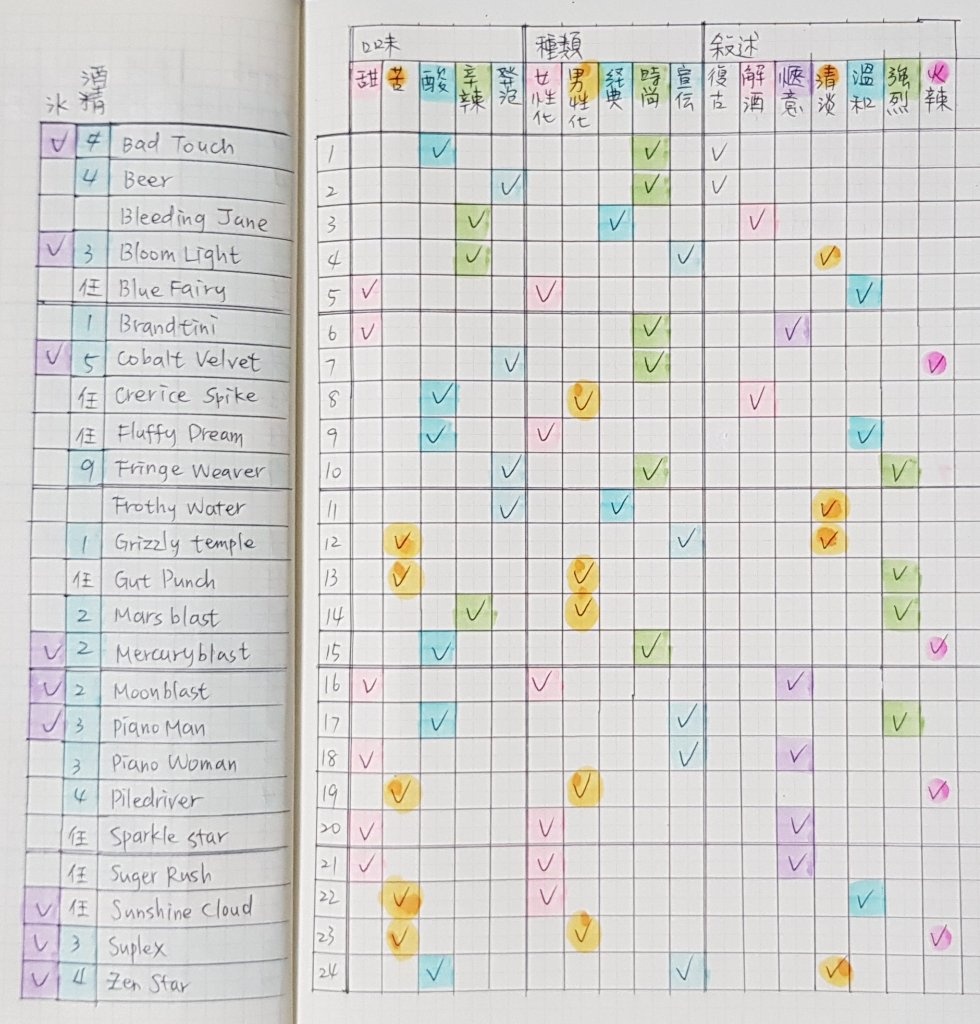 冰 酒精
✓ 4 Bad Touch
4 Beer
Bleeding Jane
✓ 3 Bloom Light
任 Blue Fairy
1 Brandtini
✓ 5 Cobalt Velvet
任 Crerice Spike
任 Fluffy Dream
9 Fringe Weaver
Frothy Water
1 Grizzly temple
任 Gut Punch
2 Mars blast
✓ 2 Mercuryblast
✓ 2 Moonblast
✓ 3 Piano Man
3 Piano Woman
4 Piledriver
任 Sparkle star
任 Suger Rush
✓ 任 Sunshine Cloud
✓ 3 Suplex
✓ 4 Zen Star
口味 種類 敘述
甜 苦 酸 辛辣 發泡 女性化 男性化 经典 時尚 宣伝 復古 解酒 愜意 清淡 溫和 強烈 火辣
1 ✓ ✓ ✓
2 ✓ ✓ ✓
3 ✓ ✓ ✓
4 ✓ ✓ ✓
5 ✓ ✓ ✓
6 ✓ ✓ ✓
7 ✓ ✓ ✓
8 ✓ ✓ ✓
9 ✓ ✓ ✓
10 ✓ ✓ ✓
11 ✓ ✓ ✓
12 ✓ ✓ ✓
13 ✓ ✓ ✓
14 ✓ ✓ ✓
15 ✓ ✓ ✓
16 ✓ ✓ ✓
17 ✓ ✓ ✓
18 ✓ ✓ ✓
19 ✓ ✓ ✓
20 ✓ ✓ ✓
21 ✓ ✓ ✓
22 ✓ ✓ ✓
23 ✓ ✓ ✓
24 ✓ ✓ ✓